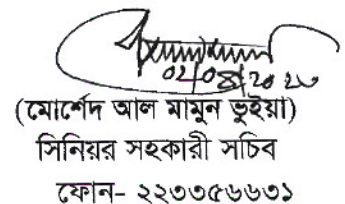 02/08/2023
(মোর্শেদ আল মামুন ভুইয়া)
সিনিয়র সহকারী সচিব
ফোন- ২২৩৩৫৬৬৩১